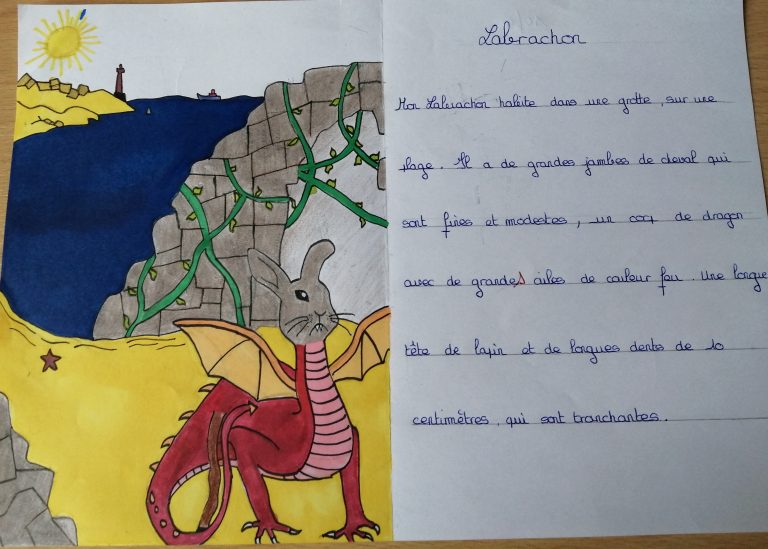 Labrachon
Mon Labrachon habite dans une grotte, sur une
plage. Il a de grandes jambes de cheval qui
sont fines et modestes, un corq de dragon
avec de grandes ailes de couleur feu. Une longue
tête de lapin et de longues dents de 10
centimètres, qui sont tranchantes.